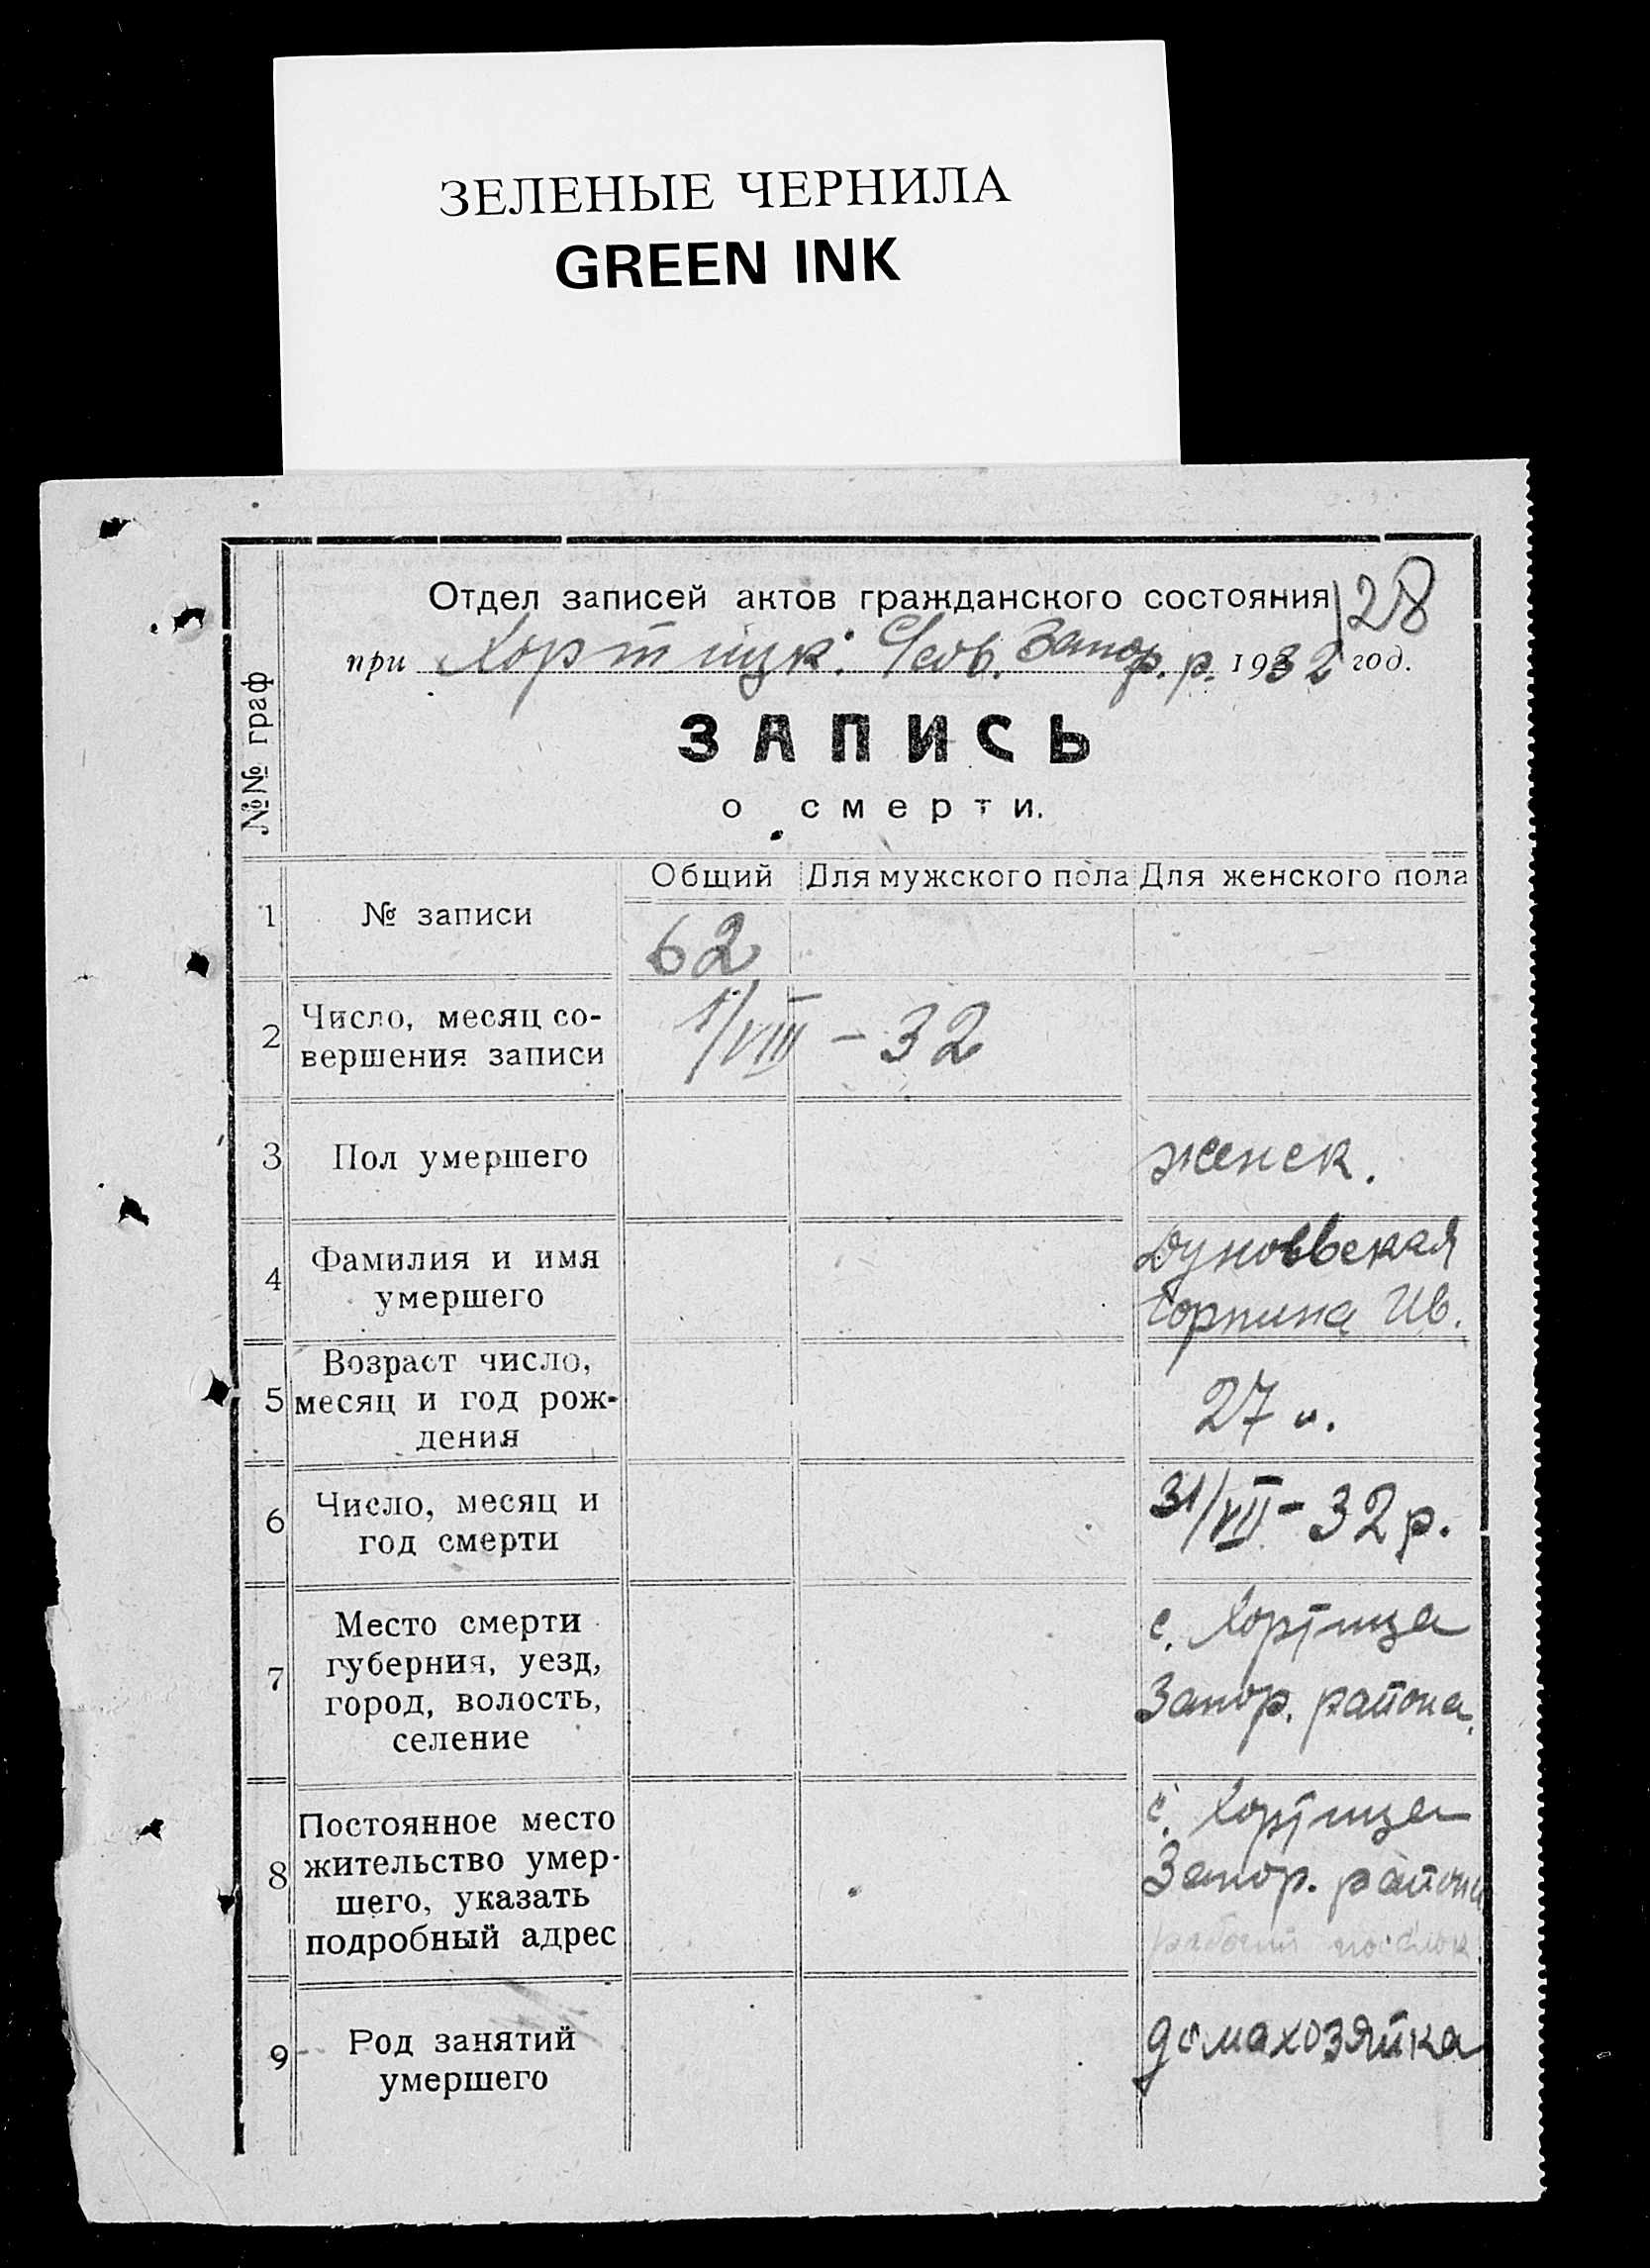 ЗЕЛЕНЫЕ ЧЕРНИЛА
GREEN INK
Отдел записей актов гражданского состояния
128
при Хортицк. С/сов. Запор. р. 1932 год.
№№ граф
ЗАПИСЬ
о смерти.
Общий Для мужского пола Для женского пола
1 № записи 62
2 Число, месяц со-
вершения записи
1/VIII - 32
3 Пол умершего женск.
4 Фамилия и имя
умершего
Горпина Ив.
5 Возраст число,
месяц и год рож-
дения
27
6 Число, месяц и
год смерти
31/VII - 32 р.
7 Место смерти
губерния, уезд,
город, волость,
селение
с. Хортица
Запор. района.
8 Постоянное место
жительство умер-
шего, указать
подробный адрес
с. Хортица
Запор. района
рабочий поселок
9 Род занятий
умершего
домахозяйка